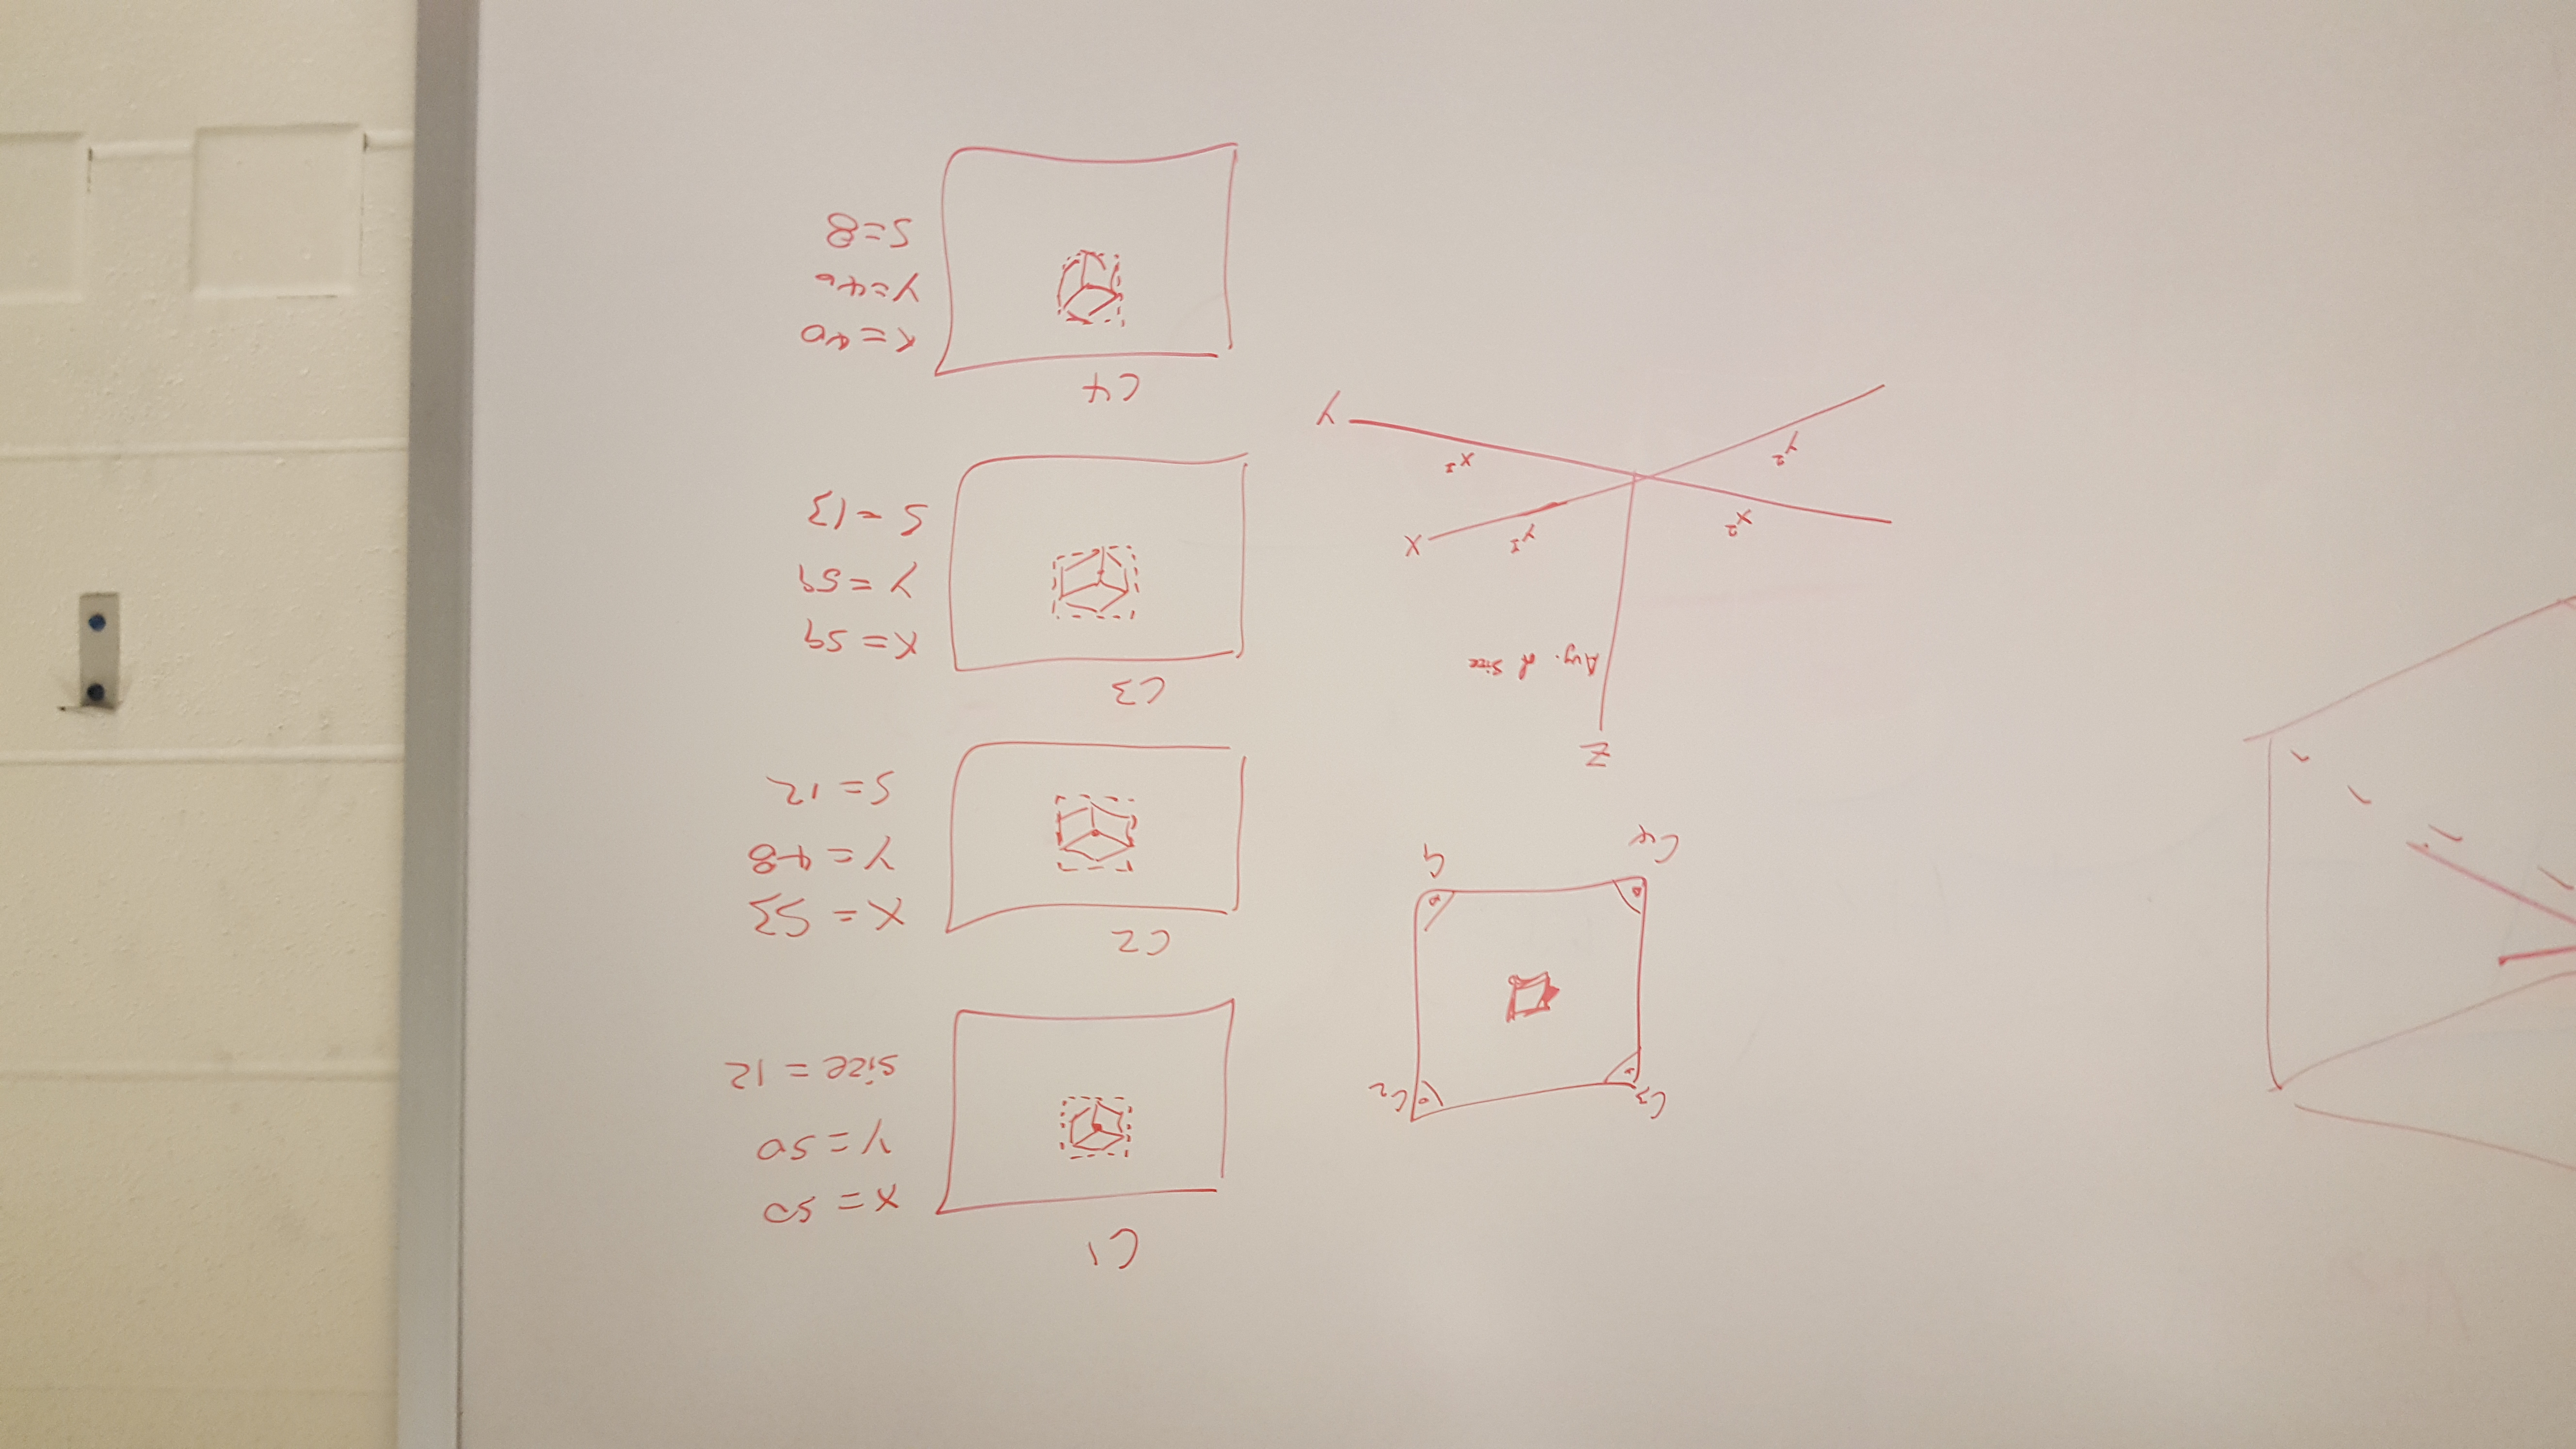 C3
C2
C4
C1
Z
Avg. of Size
X
x²
y¹
y²
x¹
Y
C1
X = 50
Y = 50
size = 12
C2
X = 53
Y = 48
S = 12
C3
X = 59
Y = 59
S = 13
C4
X = 40
Y = 40
S = 8